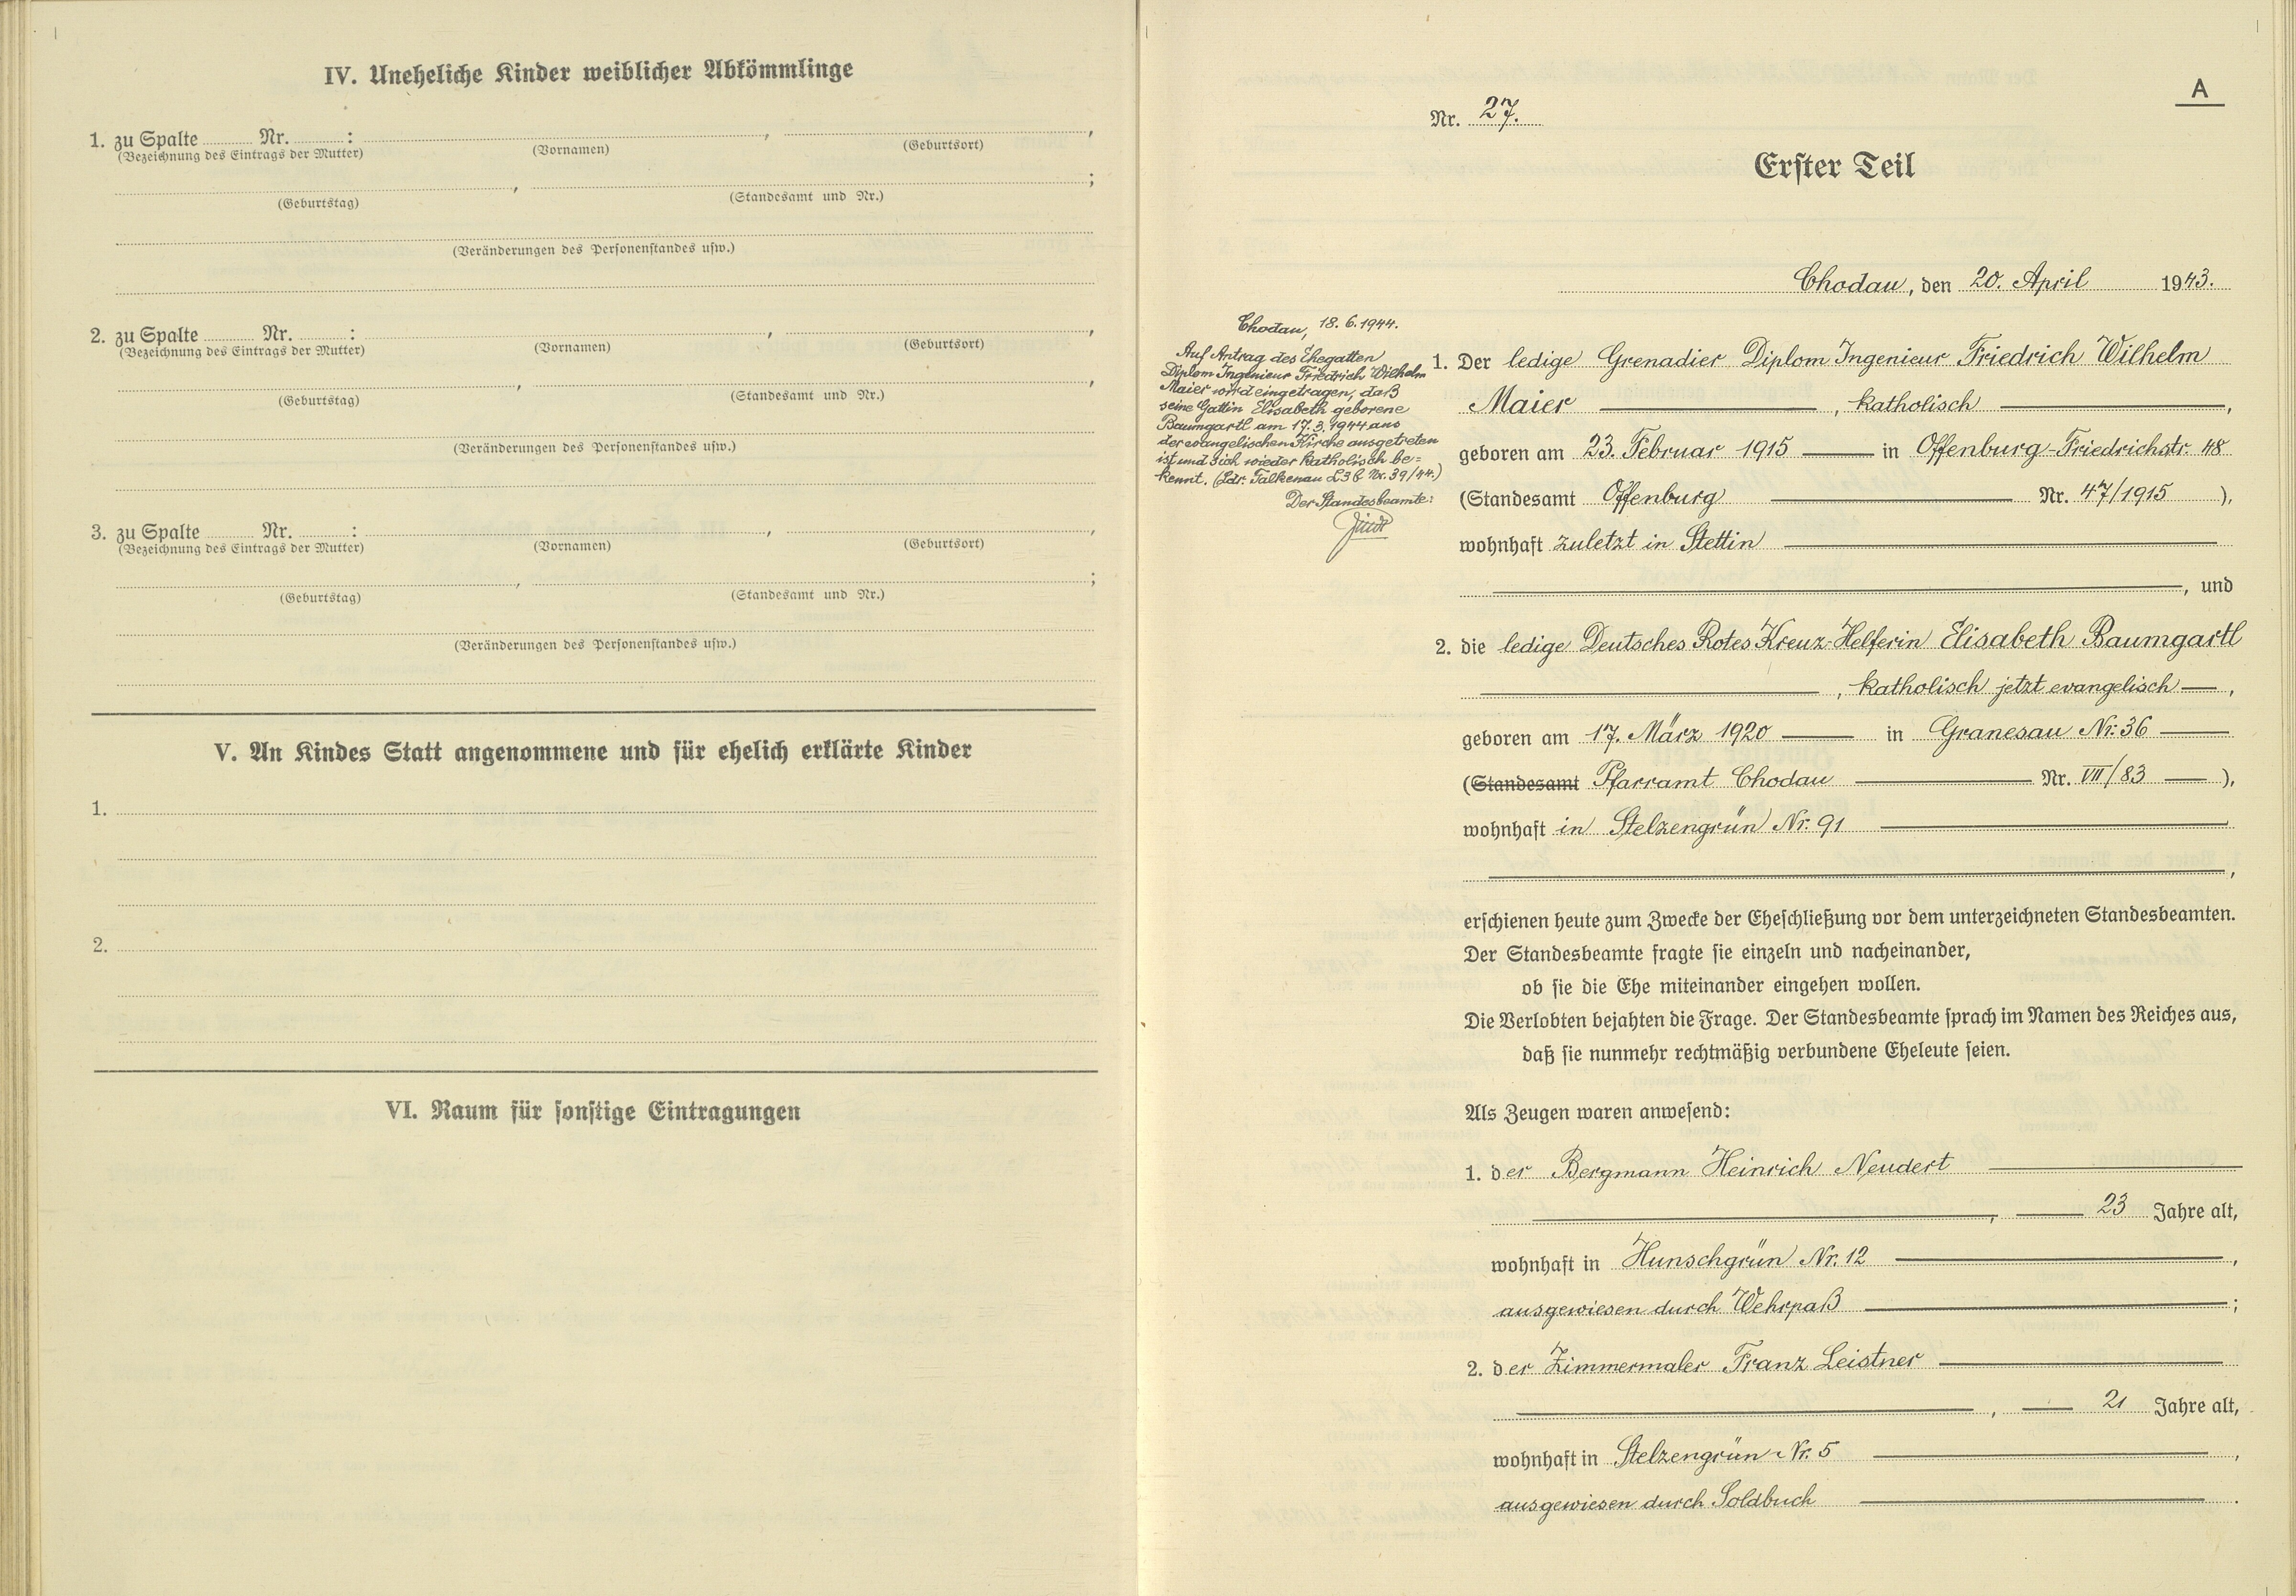 IV. Uneheliche Kinder weiblicher Abkömmlinge
1. zu Spalte ........ Nr. ........ : ........, ........,
(Bezeichnung des Eintrags der Mutter) (Vornamen) (Geburtsort)
........, ........;
(Geburtstag) (Standesamt und Nr.)
(Veränderungen des Personenstandes usw.)
2. zu Spalte ........ Nr. ........ : ........, ........,
(Bezeichnung des Eintrags der Mutter) (Vornamen) (Geburtsort)
........, ........,
(Geburtstag) (Standesamt und Nr.)
(Veränderungen des Personenstandes usw.)
3. zu Spalte ........ Nr. ........ : ........, ........,
(Bezeichnung des Eintrags der Mutter) (Vornamen) (Geburtsort)
........, ........;
(Geburtstag) (Standesamt und Nr.)
(Veränderungen des Personenstandes usw.)
V. An Kindes Statt angenommene und für ehelich erklärte Kinder
1.
2.
VI. Raum für sonstige Eintragungen
A
Nr. 27.
Erster Teil
Chodau, den 20. April 1943.
Chodau, 18. 6. 1944.
Auf Antrag des Ehegatten
Diplom Ingenieur Friedrich Wilhelm
Maier wird eingetragen, daß
seine Gattin Elisabeth geborene
Baumgartl am 17. 3. 1944 aus
der evangelischen Kirche ausgetreten
ist und sich wieder katholisch be=
kennt. (Ldr. Falkenau L 3 b Nr. 39/44.)
Der Standesbeamte:
1. Der ledige Grenadier Diplom Ingenieur Friedrich Wilhelm
Maier, katholisch,
geboren am 23. Februar 1915 in Offenburg-Friedrichstr. 48
(Standesamt Offenburg Nr. 47/1915),
wohnhaft zuletzt in Stettin
, und
2. die ledige Deutsches Rotes Kreuz-Helferin Elisabeth Baumgartl
, katholisch jetzt evangelisch,
geboren am 17. März 1920 in Granesau Nr. 36
(Standesamt Pfarramt Chodau Nr. VII/83),
wohnhaft in Stelzengrün Nr. 91
,
erschienen heute zum Zwecke der Eheschließung vor dem unterzeichneten Standesbeamten.
Der Standesbeamte fragte sie einzeln und nacheinander,
ob sie die Ehe miteinander eingehen wollen.
Die Verlobten bejahten die Frage. Der Standesbeamte sprach im Namen des Reiches aus,
daß sie nunmehr rechtmäßig verbundene Eheleute seien.
Als Zeugen waren anwesend:
1. der Bergmann Heinrich Neudert
, 23 Jahre alt,
wohnhaft in Hunschgrün Nr. 12,
ausgewiesen durch Wehrpaß;
2. der Zimmermaler Franz Leistner
, 21 Jahre alt,
wohnhaft in Stelzengrün Nr. 5,
ausgewiesen durch Soldbuch.